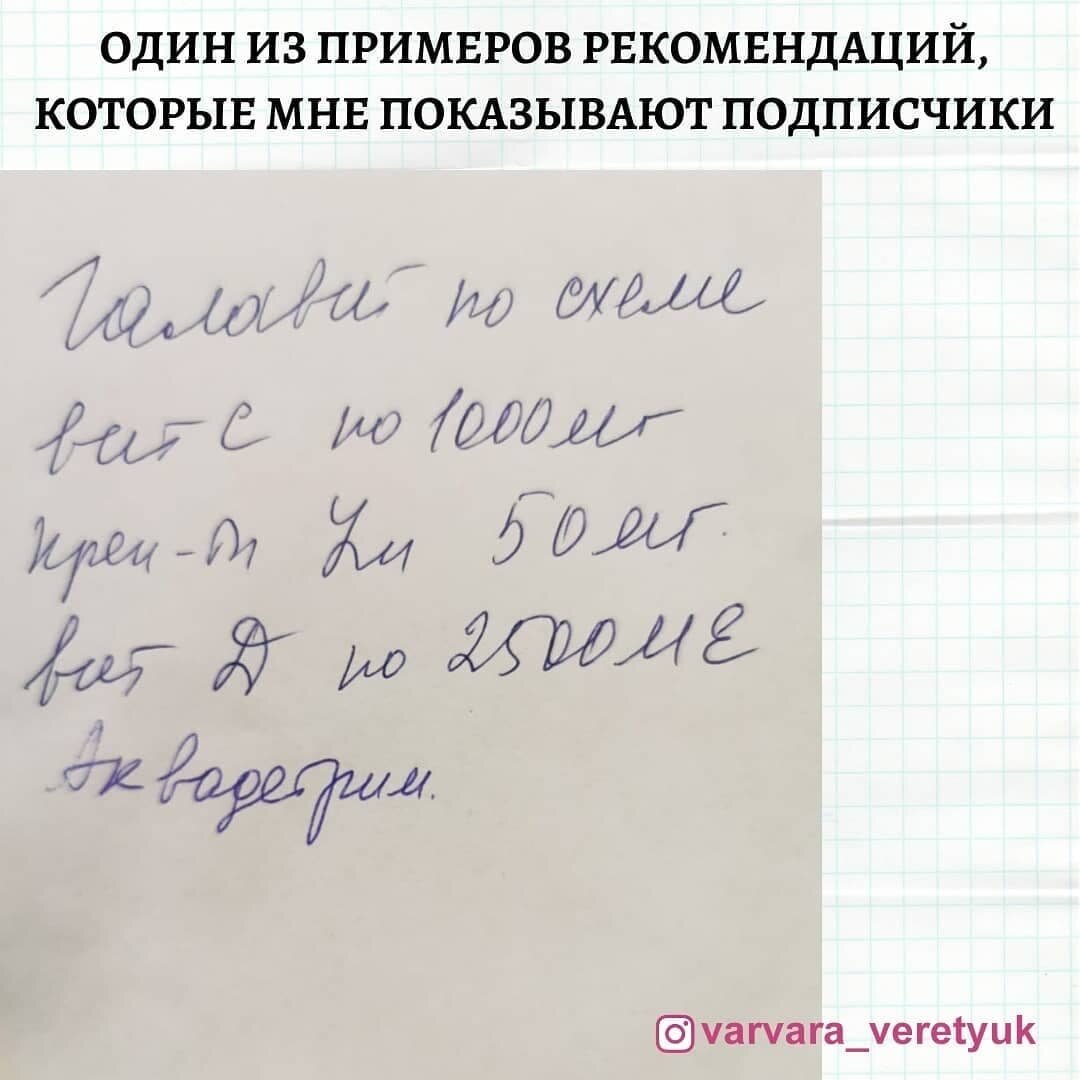 ОДИН ИЗ ПРИМЕРОВ РЕКОМЕНДАЦИЙ,
КОТОРЫЕ МНЕ ПОКАЗЫВАЮТ ПОДПИСЧИКИ
Галавит по схеме
вит С по 1000 мг
преп-т Zn 50 мг.
вит Д по 2500 МЕ
Аквадетрим.
varvara_veretyuk